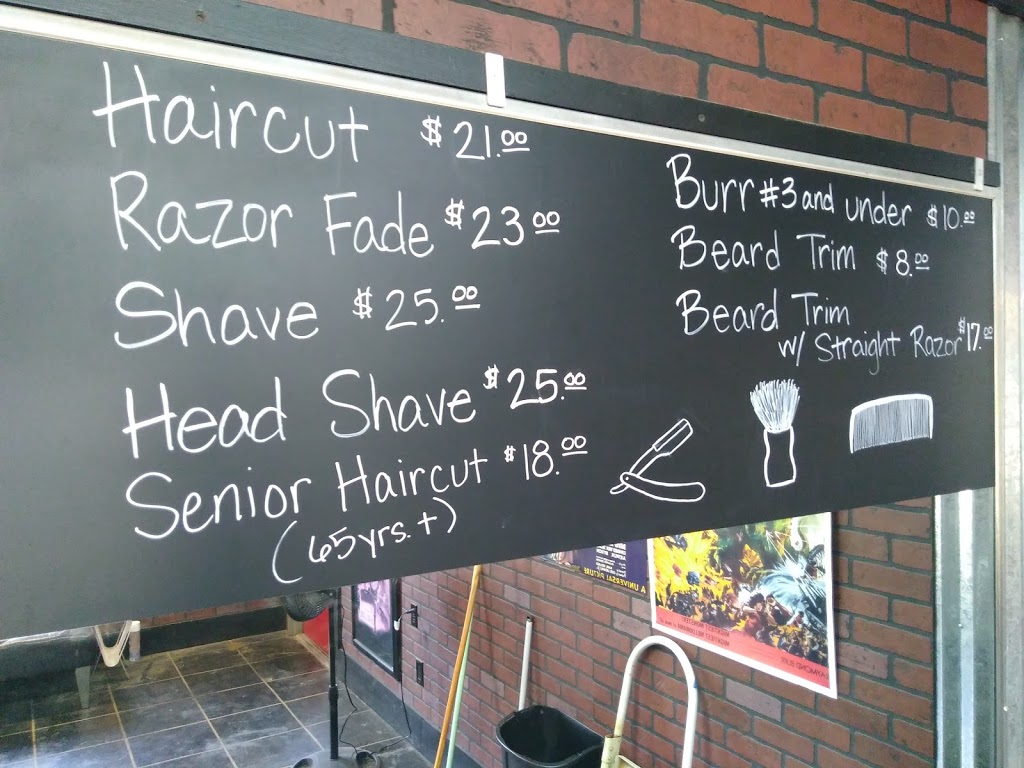 Haircut $21.00
Razor Fade $23.00
Shave $25.00
Head Shave $25.00
Senior Haircut $18.00
(65yrs.+)
Burr #3 and under $10.00
Beard Trim $8.00
Beard Trim
w/ Straight Razor $17.00
A UNIVERSAL PICTURE